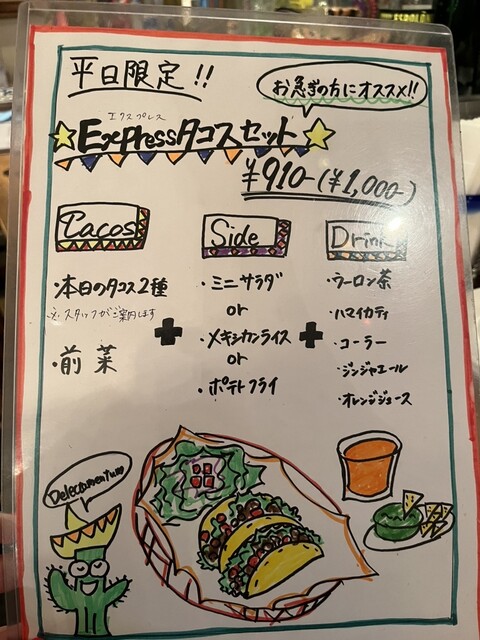 平日限定!!
お急ぎの方にオススメ!!
エクスプレス
Expressタコスセット
¥910-(¥1,000-)
Tacos
・本日のタコス2種
※スタッフがご案内します
・前菜
+
Side
・ミニサラダ
or
・メキシカンライス
or
・ポテトフライ
+
Drink
・ウーロン茶
・ハマイカティ
・コーラー
・ジンジャエール
・オレンジジュース